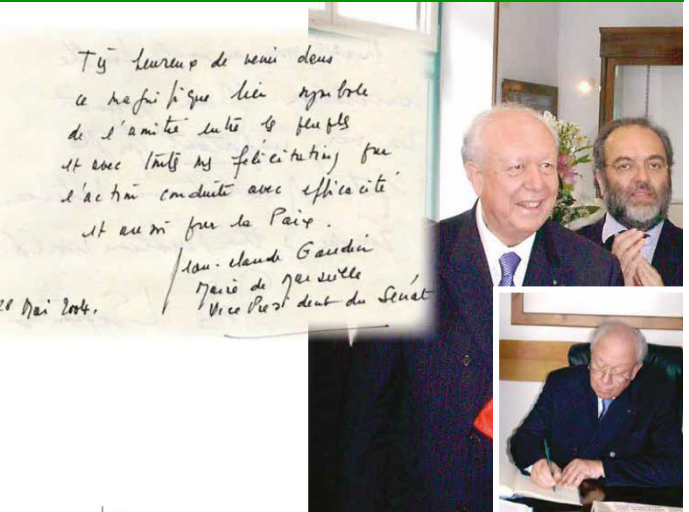 Très heureux de venir dans
ce magnifique lieu symbole
de l'amitié entre les peuples
et avec toutes mes félicitations pour
l'action conduite avec efficacité
et aussi pour la Paix.
Jean-Claude Gaudin
Maire de Marseille
Vice Président du Sénat
28 Mai 2004.